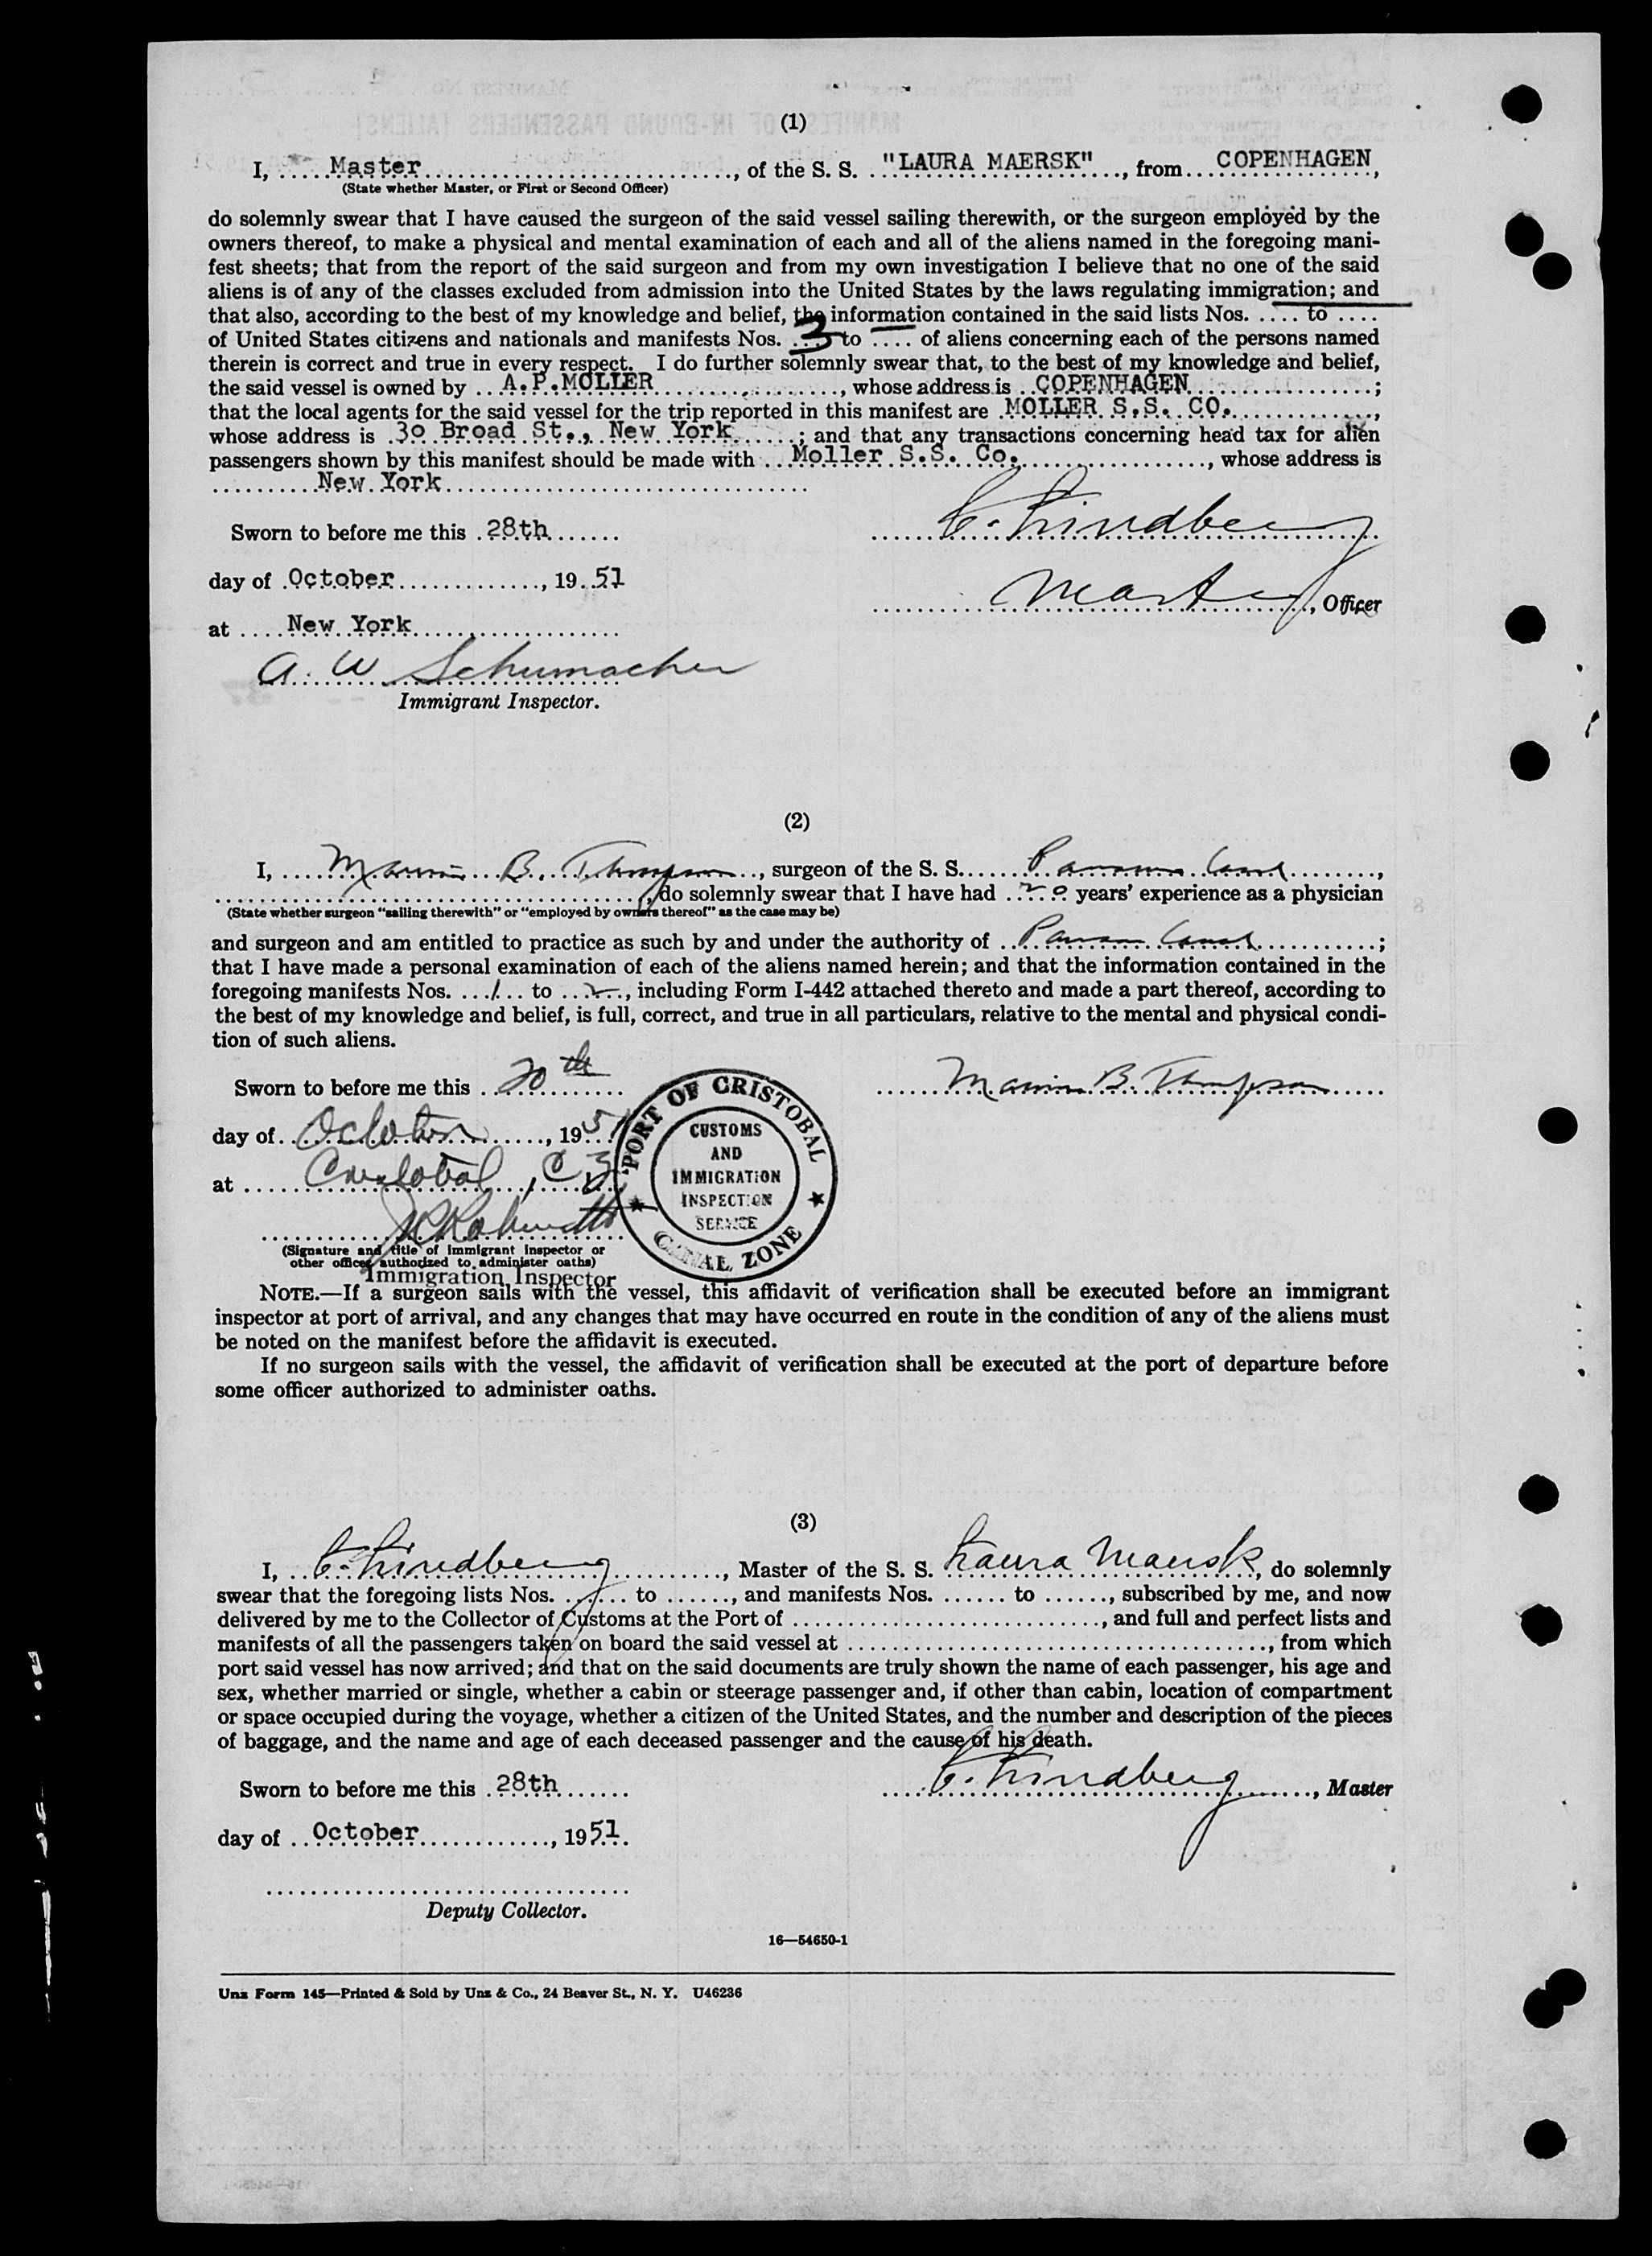 (1)
I, Master, of the S. S. "LAURA MAERSK", from COPENHAGEN,
(State whether Master, or First or Second Officer)
do solemnly swear that I have caused the surgeon of the said vessel sailing therewith, or the surgeon employed by the
owners thereof, to make a physical and mental examination of each and all of the aliens named in the foregoing mani-
fest sheets; that from the report of the said surgeon and from my own investigation I believe that no one of the said
aliens is of any of the classes excluded from admission into the United States by the laws regulating immigration; and
that also, according to the best of my knowledge and belief, the information contained in the said lists Nos. .... to ....
of United States citizens and nationals and manifests Nos. 3 to .... of aliens concerning each of the persons named
therein is correct and true in every respect. I do further solemnly swear that, to the best of my knowledge and belief,
the said vessel is owned by A.P.MOLLER, whose address is COPENHAGEN;
that the local agents for the said vessel for the trip reported in this manifest are MOLLER S.S. CO.,
whose address is 30 Broad St., New York; and that any transactions concerning head tax for alien
passengers shown by this manifest should be made with Moller S.S. Co., whose address is
New York
Sworn to before me this 28th
C. Lindberg
day of October, 19 51
Master, Officer
at New York
A. W Schumacher
Immigrant Inspector.
(2)
I, B. Thompson, surgeon of the S. S. Panama Canal,
, do solemnly swear that I have had 20 years' experience as a physician
(State whether surgeon "sailing therewith" or "employed by owners thereof" as the case may be)
and surgeon and am entitled to practice as such by and under the authority of Panama Canal;
that I have made a personal examination of each of the aliens named herein; and that the information contained in the
foregoing manifests Nos. 1 to 2, including Form I-442 attached thereto and made a part thereof, according to
the best of my knowledge and belief, is full, correct, and true in all particulars, relative to the mental and physical condi-
tion of such aliens.
Sworn to before me this 20th
B. Thompson
day of October, 1951
at Cristobal, C Z
PORT OF CRISTOBAL
CUSTOMS
AND
IMMIGRATION
INSPECTION
SERVICE
CANAL ZONE
(Signature and title of Immigrant Inspector or
other officer authorized to administer oaths)
Immigration Inspector
NOTE.—If a surgeon sails with the vessel, this affidavit of verification shall be executed before an immigrant
inspector at port of arrival, and any changes that may have occurred en route in the condition of any of the aliens must
be noted on the manifest before the affidavit is executed.
If no surgeon sails with the vessel, the affidavit of verification shall be executed at the port of departure before
some officer authorized to administer oaths.
(3)
I, C. Lindberg, Master of the S. S. Laura Maersk, do solemnly
swear that the foregoing lists Nos. ....... to ......, and manifests Nos. ....... to ......, subscribed by me, and now
delivered by me to the Collector of Customs at the Port of ......, and full and perfect lists and
manifests of all the passengers taken on board the said vessel at ......, from which
port said vessel has now arrived; and that on the said documents are truly shown the name of each passenger, his age and
sex, whether married or single, whether a cabin or steerage passenger and, if other than cabin, location of compartment
or space occupied during the voyage, whether a citizen of the United States, and the number and description of the pieces
of baggage, and the name and age of each deceased passenger and the cause of his death.
Sworn to before me this 28th
C. Lindberg, Master
day of October, 1951.
Deputy Collector.
16—54650-1
Unz Form 145—Printed & Sold by Unz & Co., 24 Beaver St., N. Y. U46236